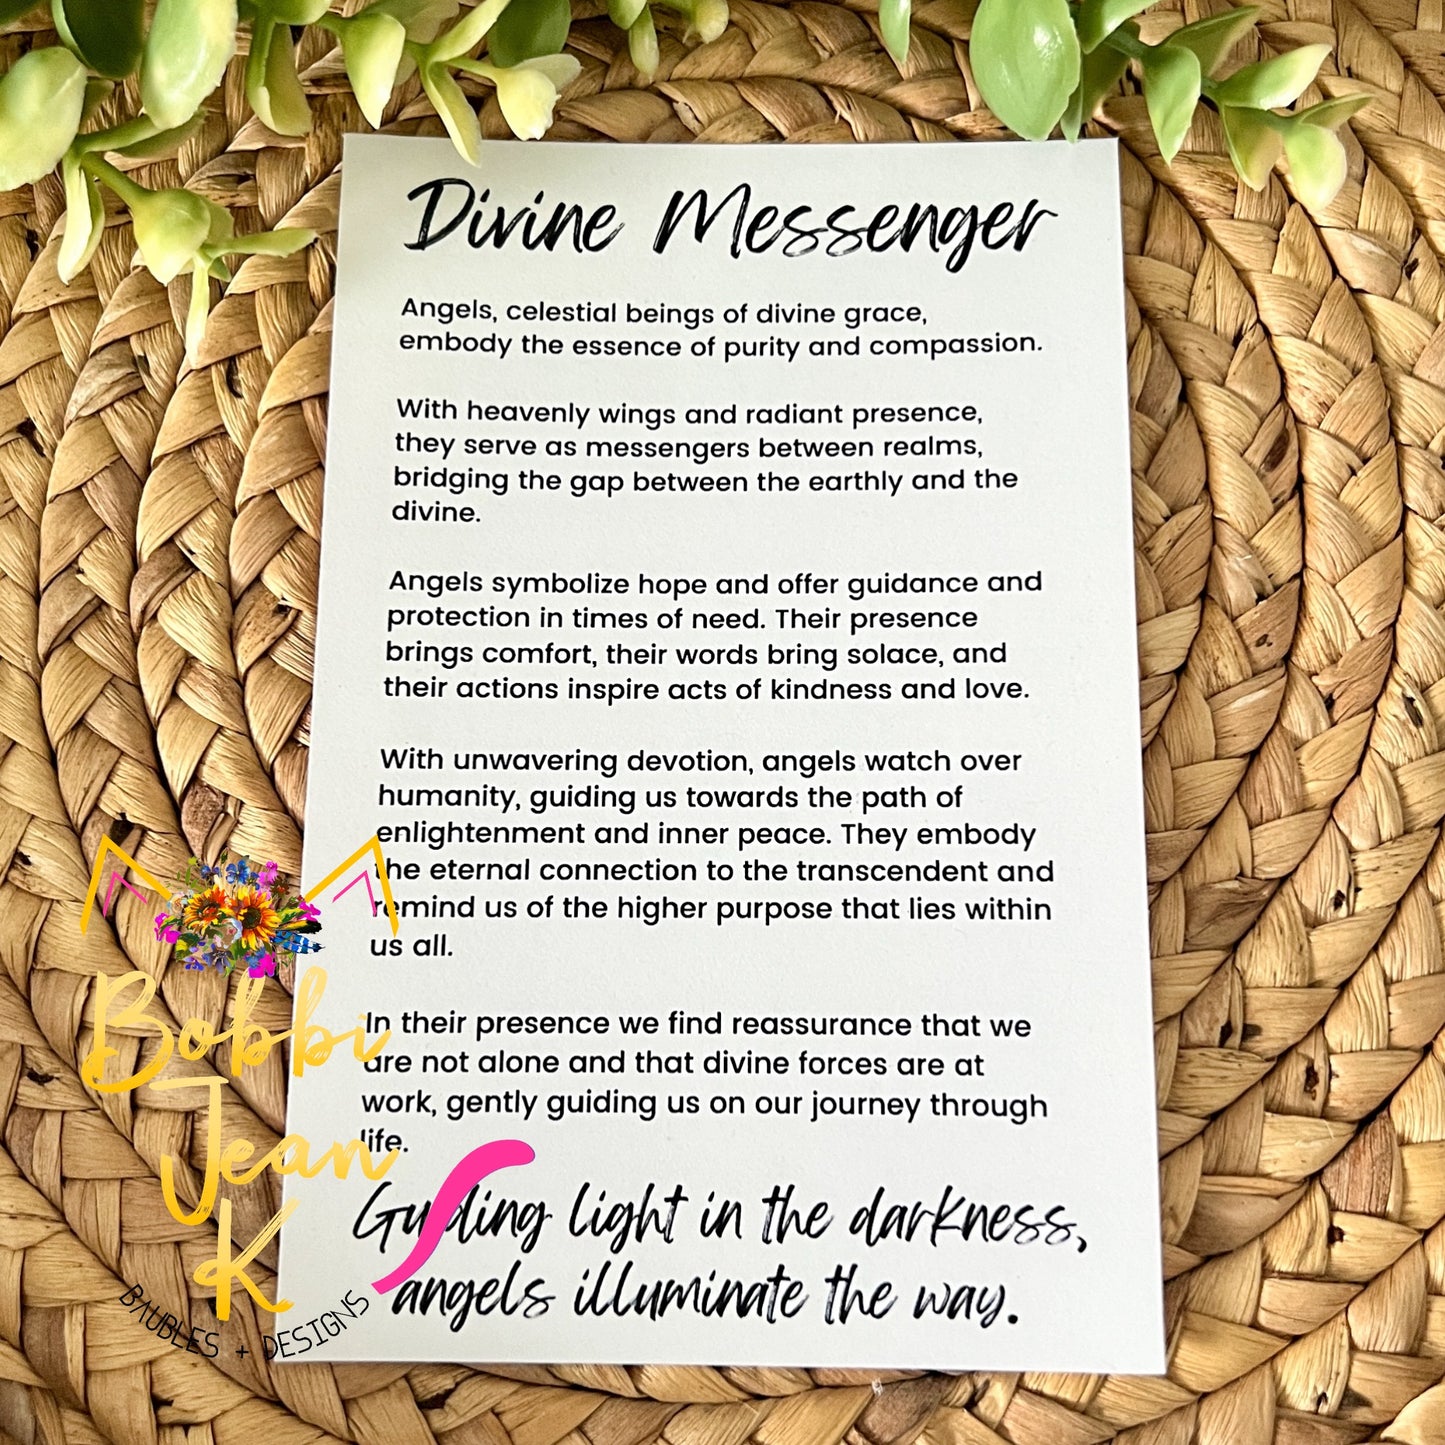 Divine Messenger
Angels, celestial beings of divine grace,
embody the essence of purity and compassion.
With heavenly wings and radiant presence,
they serve as messengers between realms,
bridging the gap between the earthly and the
divine.
Angels symbolize hope and offer guidance and
protection in times of need. Their presence
brings comfort, their words bring solace, and
their actions inspire acts of kindness and love.
With unwavering devotion, angels watch over
humanity, guiding us towards the path of
enlightenment and inner peace. They embody
the eternal connection to the transcendent and
remind us of the higher purpose that lies within
us all.
In their presence we find reassurance that we
are not alone and that divine forces are at
work, gently guiding us on our journey through
life.
Guiding light in the darkness,
angels illuminate the way.
Bobbi
Jean
K
BAUBLES + DESIGNS